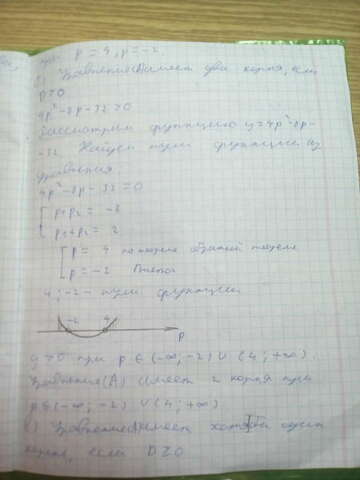 при p = 4, p = -2.
б) Уравнение(A)имеет два корня, если
D>0
4p²-8p-32>0
Рассмотрим функцию y=4p²-8p-
-32. Найдем нули функции из
уравнения.
4p²-8p-32=0
[ p₁p₂ = -8
p₁+p₂ = 2
[ p = 4 по теореме обратной теореме
p = -2 Виета
4; -2 - нули функции
-2 4 p
y>0 при p ∈ (-∞; -2) ∪ (4; +∞).
Уравнение(A) имеет 2 корня при
p∈(-∞; -2) ∪ (4; +∞)
в) Уравнение(A)имеет хотя бы один
корень, если D≥0